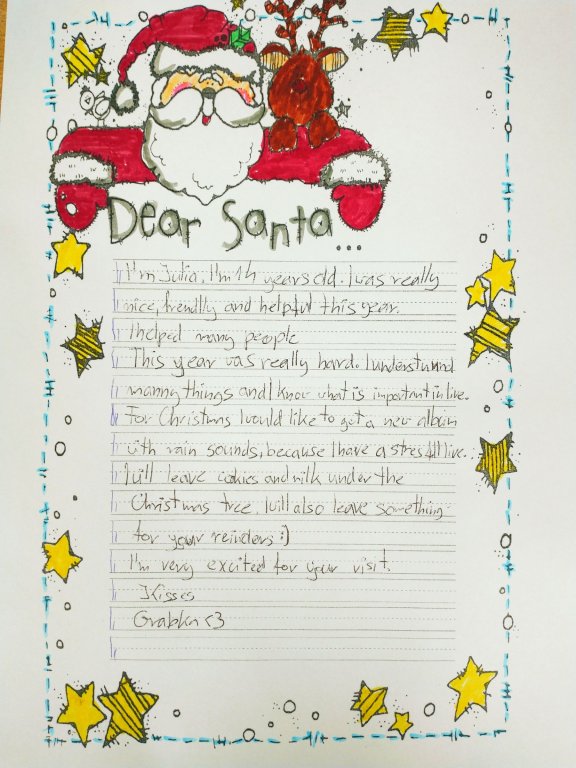 Dear Santa...
I'm Julia, I'm 14 years old. I was really
nice, frendly and helpful this year.
I helped many people
This year was really hard. I understunnd
manny things and I know what is important in live.
For Christmas I would like to get a new album
with rain sounds, because I have a stresfull live.
I will leave cookies and milk under the
Christmas tree. I will also leave something
for your reinders :)
I'm very excited for your visit.
Kisses
<3